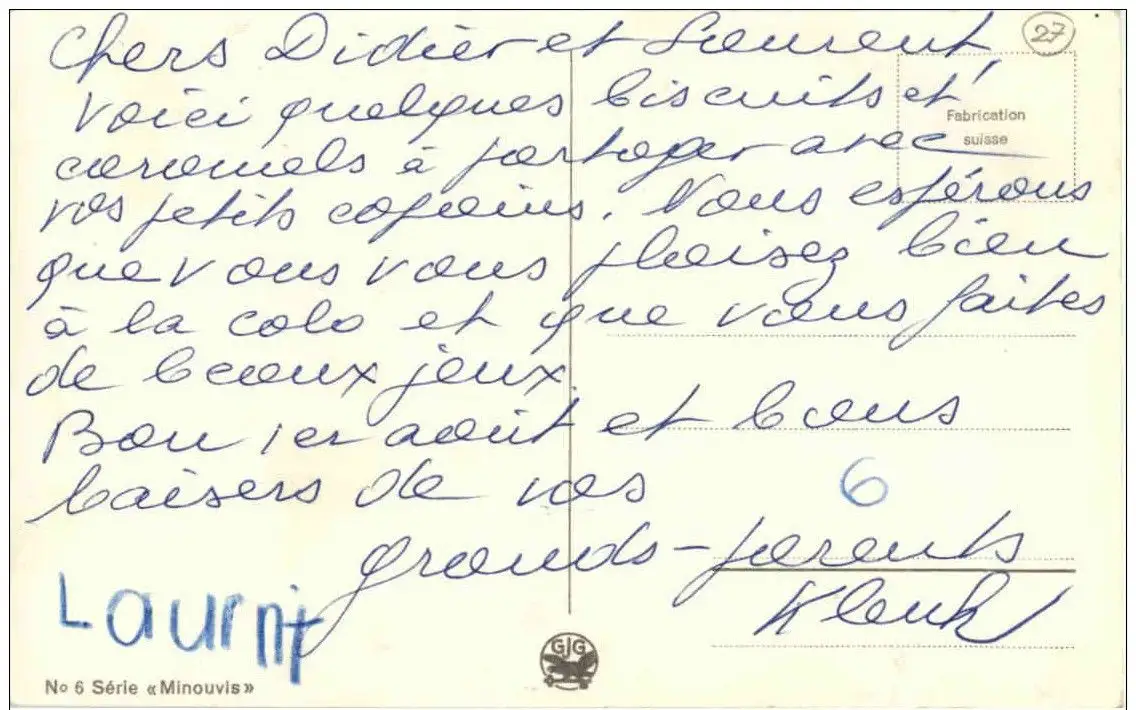 27
Chers Didier et Laurent,
voici quelques biscuits et
Fabrication
suisse
caramels à partager avec
vos petits copains. Nous espérons
que vous vous plaisez bien
à la colo et que vous faites
de beaux jeux.
Bon 1er août et bons
baisers de vos
6
grands-parents
Klenk
Laurnt
GJG
No 6 Série «Minouvis»